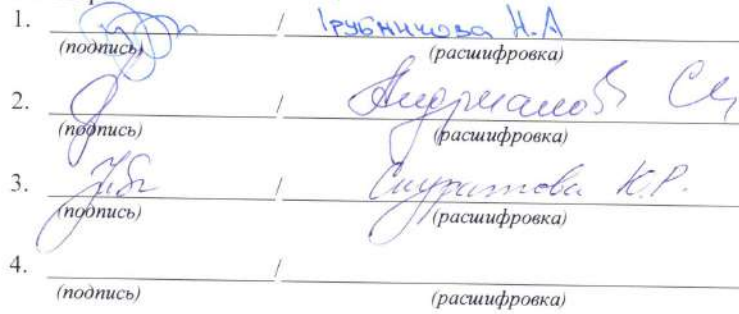 1. / Трубникова Н.А
(подпись) (расшифровка)
2. / Андрианов С
(подпись) (расшифровка)
3. / Скуратова К.Р.
(подпись) (расшифровка)
4. /
(подпись) (расшифровка)